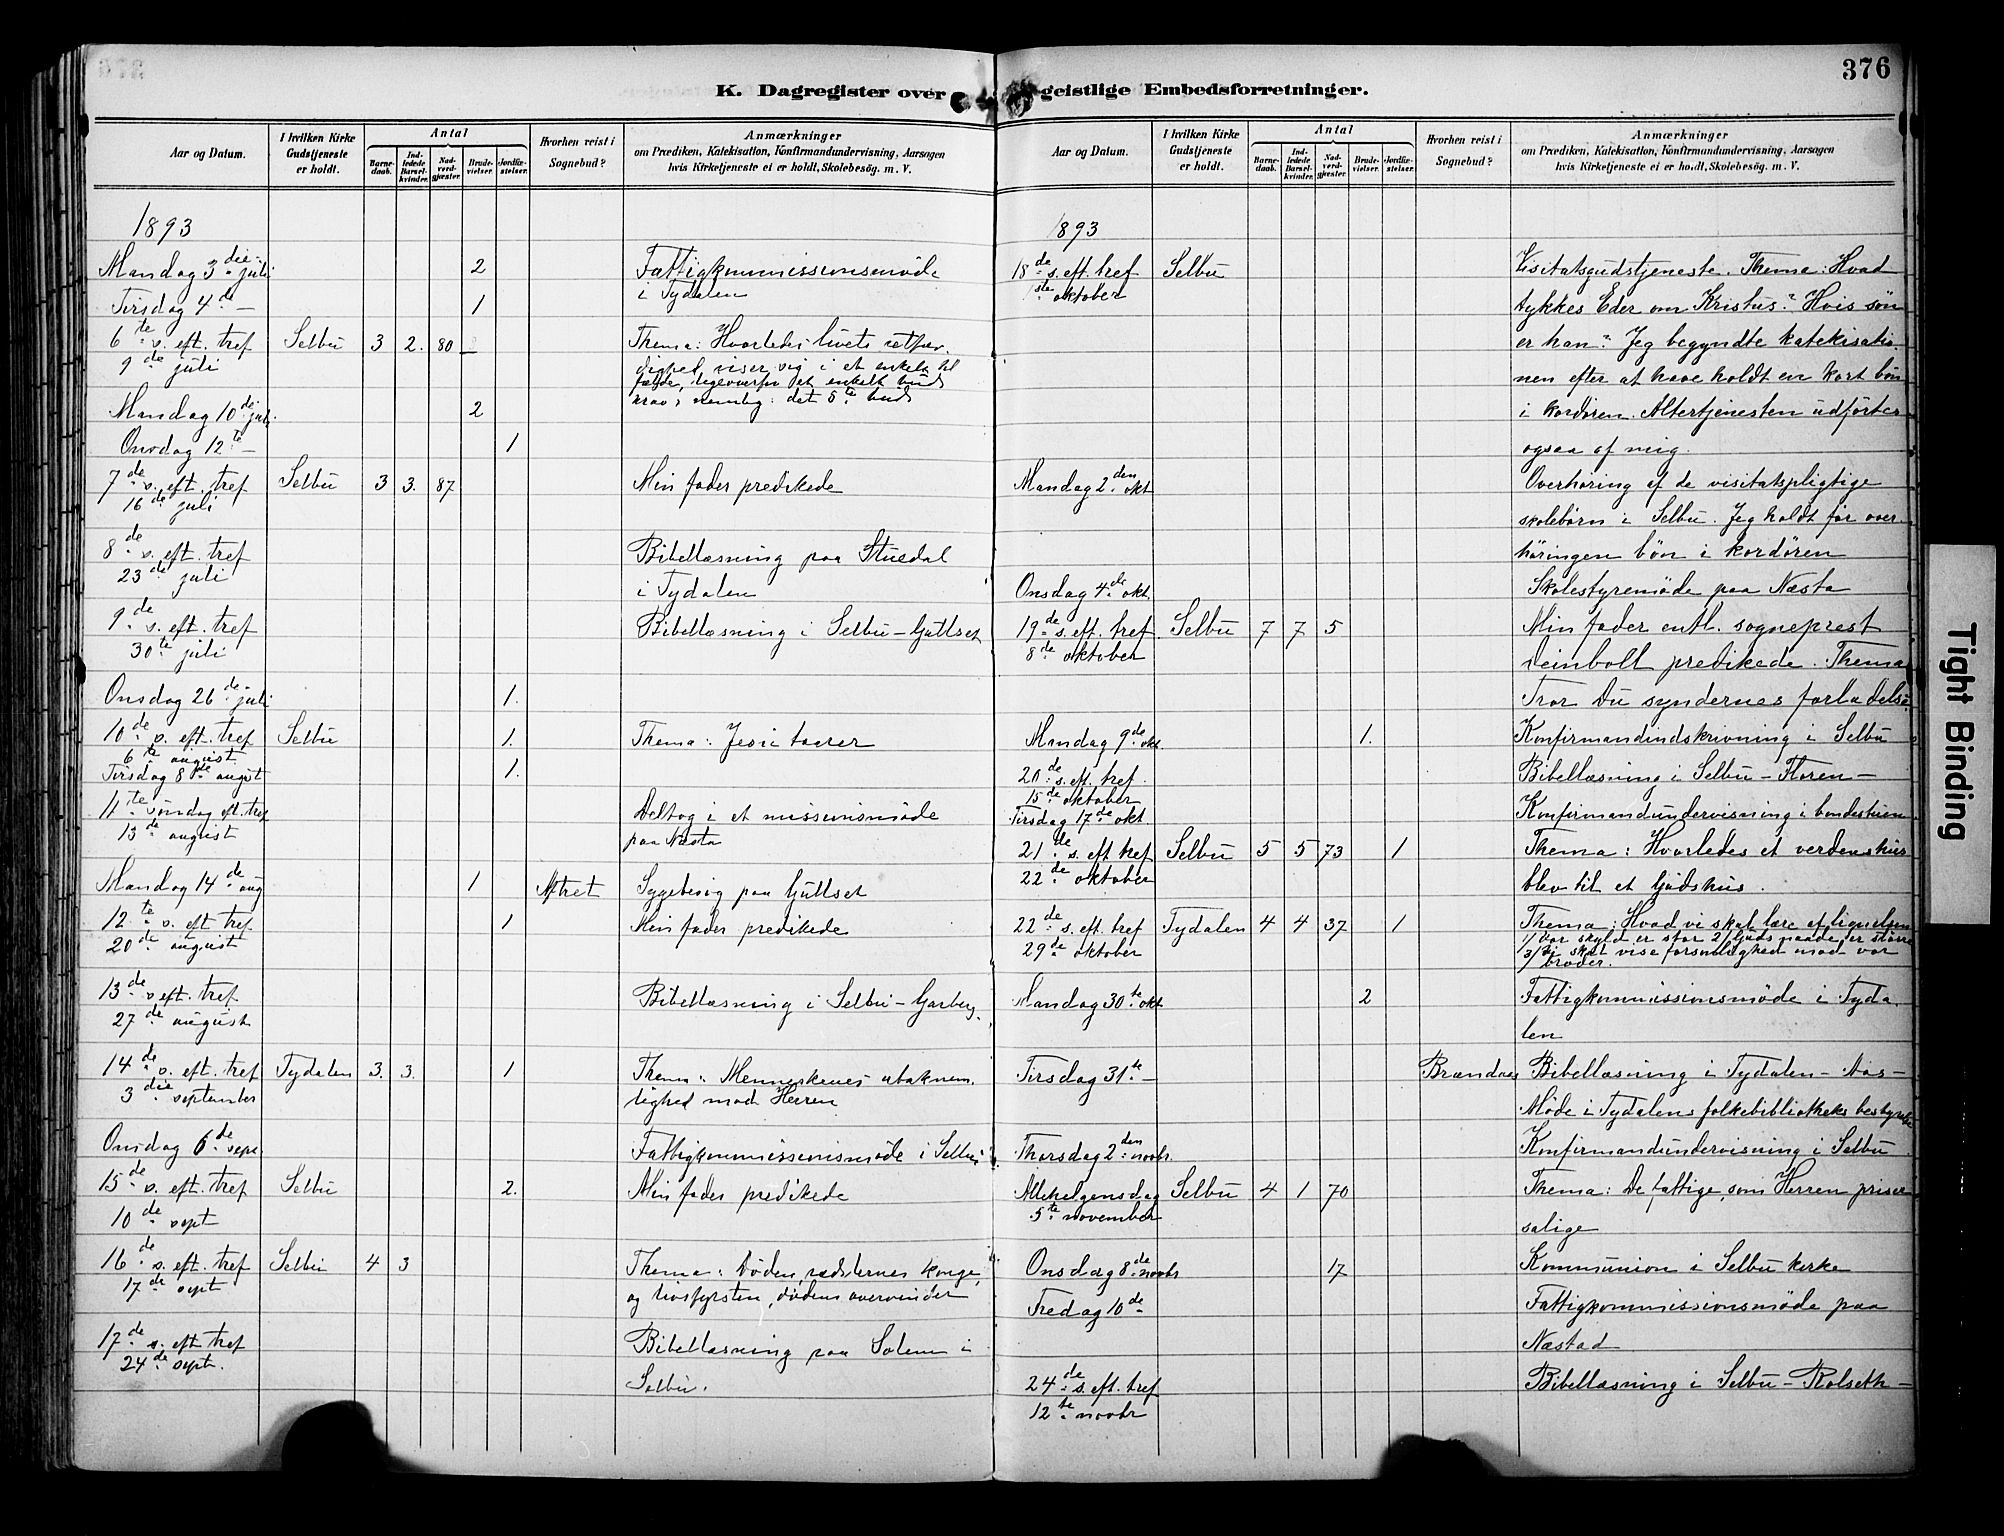 376
K. Dagregister over geistlige Embedsforretninger.
Aar og Datum.
I hvilken Kirke Gudstjeneste er holdt.
Antal
Barnedaab.
Indledede Barselkvinder.
Nadverdgjæster.
Brudevielser.
Jordfæstelser.
Hvorhen reist i Sognebud?
Anmærkninger
om Prædiken, Katekisation, Konfirmandundervisning, Aarsagen
hvis Kirketjeneste ei er holdt, Skolebesög. m. V.
1893
Mandag 3die juli 2 Fattigkommissionsmøde
i Tydalen
Tirsdag 4de — 1
6te s. eft. tref Selbu 3 2. 80 Thema: Hvorledes livets retfær-
9de juli dighed viser sig i et enkelt til
fælde, ligeoverfor et enkelt buds
krav, nemlig: det 5te bud
Mandag 10de juli 2
Onsdag 12te — 1
7de s. eft. tref Selbu 3 3. 87 Min fader predikede
16de juli
8de s. eft. tref Bibellæsning paa Stuedal
23de juli i Tydalen
9de s. eft. tref Bibellæsning i Selbu - Gullset
30te juli
Onsdag 26de juli 1.
10de s. eft. tref Selbu 1. Thema: Jesu taarer
6te august
Tirsdag 8de august 1.
11te søndag eft. tref Deltog i et missionsmøde
13de august paa Næsta
Mandag 14de aug 1 Aftret Sygebesøg paa Gullset
12te s. eft tref 1 Min fader predikede
20de august
13de s eft. tref Bibellæsning i Selbu - Garberg.
27de august
14de s. eft. tref Tydalen 3. 3. 1 Thema: Menneskenes utaknem
3die september lighed mod Herren
Onsdag 6de sept. Fattigkommissionsmøde i Selbu
15de s. eft. tref Selbu 2. Min fader predikede
10de sept
16de s. eft. tref Selbu 4 3 Thema: Døden, rædslernes konge,
17de sept og livsfyrsten, dødens overvinder
17de s. eft tref Bibellæsning paa Solem i
24de sept. Selbu.
Aar og Datum.
I hvilken Kirke Gudstjeneste er holdt.
Antal
Barnedaab.
Indledede Barselkvinder.
Nadverdgjæster.
Brudevielser.
Jordfæstelser.
Hvorhen reist i Sognebud?
Anmærkninger
om Prædiken, Katekisation, Konfirmandundervisning, Aarsagen
hvis Kirketjeneste ei er holdt, Skolebesög. m. V.
1893
18de s. eft. tref Selbu Visitatsgudstjeneste. Thema: Hvad
1ste oktober tykkes Eder om Kristus? Hvis søn
er han? Jeg begyndte katekisatio-
nen efter at have holdt en kort bøn
i kordøren. Altertjenesten udførtes
ogsaa af mig.
Mandag 2den okt Overhøring af de visitatspligtige
skolebørn i Selbu. Jeg holdt før over-
høringen bøn i kordøren
Onsdag 4de okt. Skolestyremøde paa Næsta
19de s. eft. tref Selbu 7 7 5 Min fader entl. sogneprest
8de oktober predikede. Thema
Tror Du syndernes forladelse.
Mandag 9de okt. 1. Konfirmandindskrivning i Selbu
20de s. eft. tref. Bibellæsning i Selbu - Floren -
15de oktober
Tirsdag 17de okt. Konfirmandundervisning i
21de s. eft tref Selbu 5 5 73 1 Thema: Hvorledes et verdenshus
22de oktober blev til et Gudshus.
22de s. eft. tref Tydalen 4 4 37 1 Thema: Hvad vi skal lære af lignelsen
29de oktober 1/ Vor skyld er stor 2/ Guds naade er større
3/ Vi skal vise forsonlighed mod vor
broder.
Mandag 30te okt 2 Fattigkommissionsmøde i Tyda-
len
Tirsdag 31te — Brændaas Bibellæsning i Tydalen - Aas -
Møde i Tydalens folkebibliotheks bestyrelse
Thorsdag 2den novbr. Konfirmandundervisning i Selbu
Allehelgensdag Selbu 4 1 70 Thema: De fattige, som Herren priser
5te november salige
Onsdag 8de novbr 17 Kommunion i Selbu kirke
Fredag 10de Fattigkommissionsmøde paa
Næstad
24de s. eft. tref Bibellæsning i Selbu - Rolseth -
12te novbr
Tight Binding